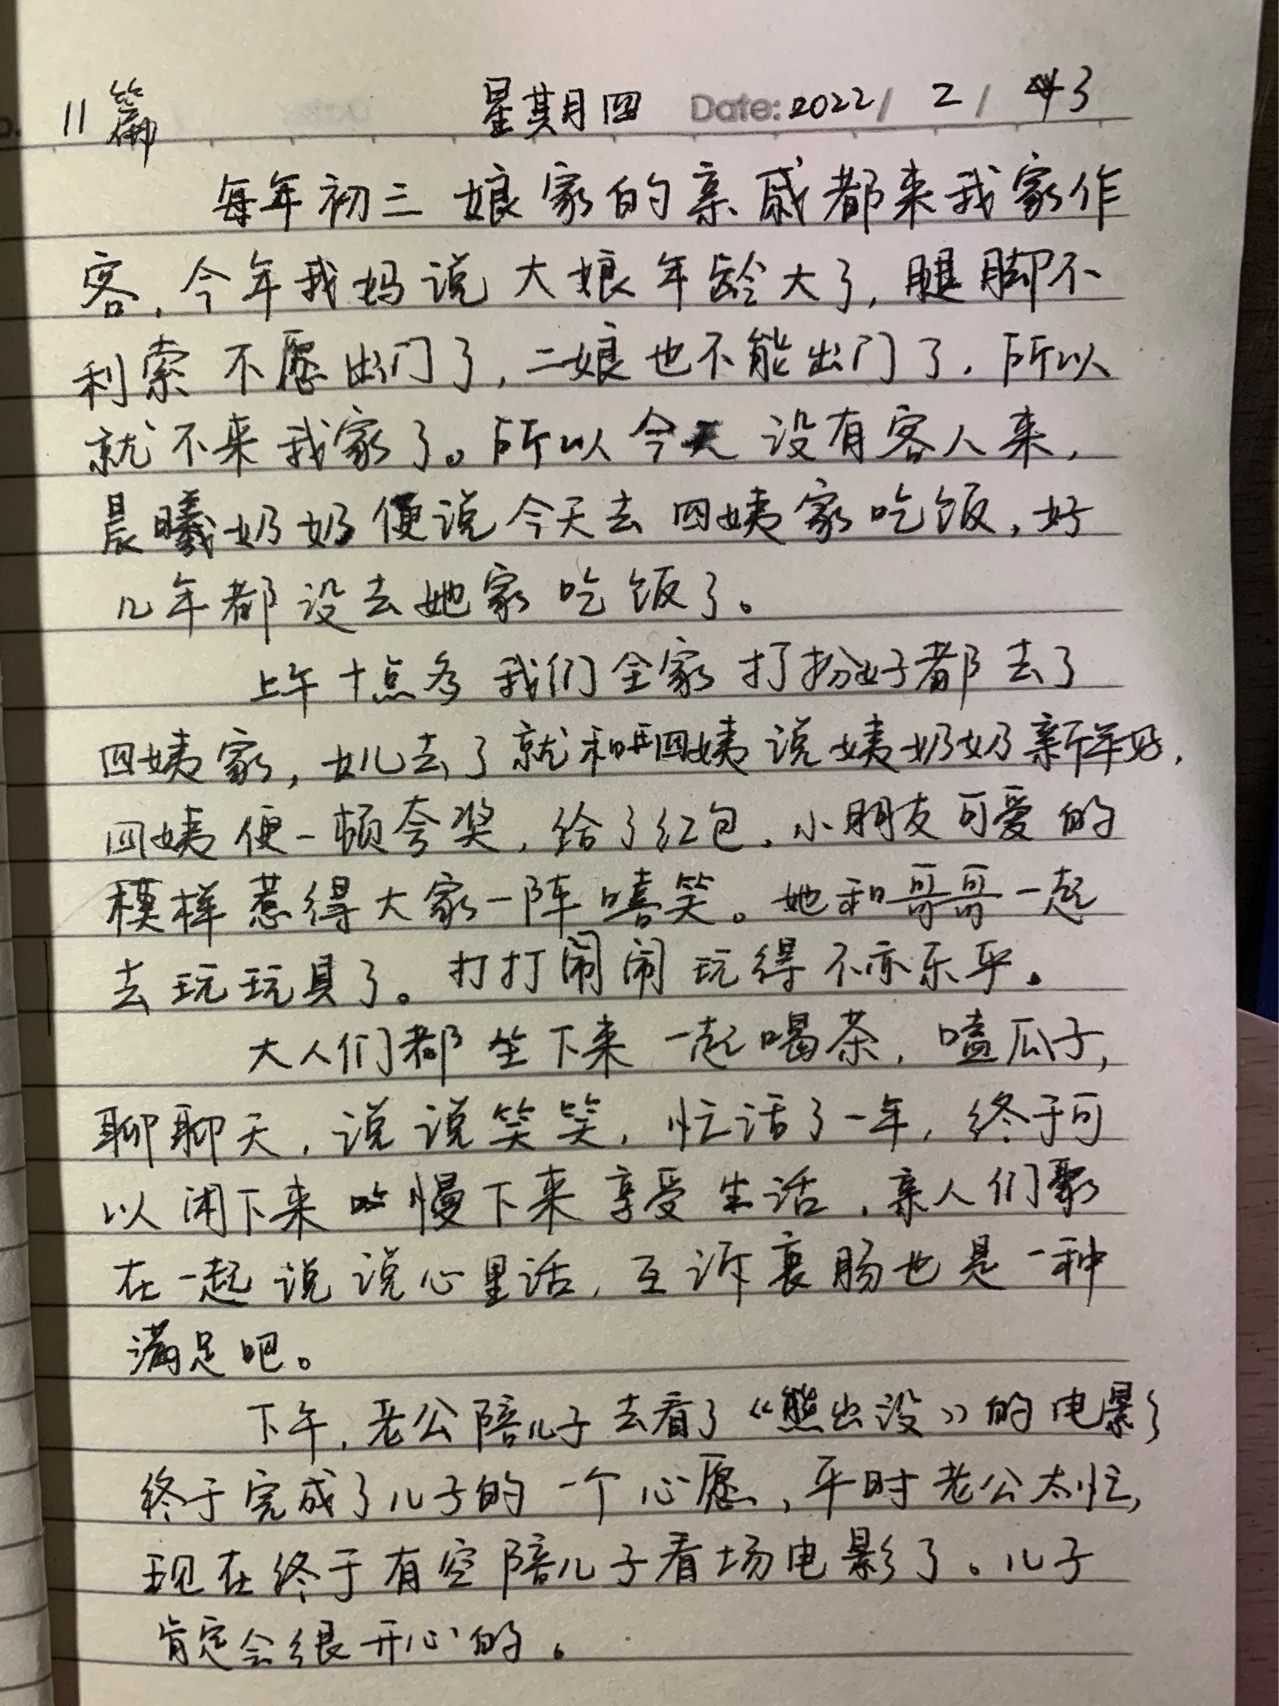 11篇 星期四 Date: 2022/2/3
每年初三 娘家的亲戚都来我家作
客,今年我妈说大娘年龄大了,腿脚不
利索不愿出门了,二娘也不能出门了,所以
就不来我家了。所以今天没有客人来,
晨曦奶奶便说今天去四姨家吃饭,好
几年都没去她家吃饭了。
上午十点多我们全家打扮好都去了
四姨家,女儿去了就和四姨说姨奶奶新年好,
四姨便一顿夸奖,给了红包,小朋友可爱的
模样惹得大家一阵嘻笑。她和哥哥一起
去玩玩具了。打打闹闹玩得不亦乐乎。
大人们都坐下来一起喝茶,嗑瓜子,
聊聊天,说说笑笑,忙活了一年,终于可
以闲下来 慢下来享受生活,亲人们聚
在一起说说心里话,互诉衷肠也是一种
满足吧。
下午,老公陪儿子去看了《熊出没》的电影
终于完成了儿子的一个心愿,平时老公太忙,
现在终于有空陪儿子看场电影了。儿子
肯定会很开心的。